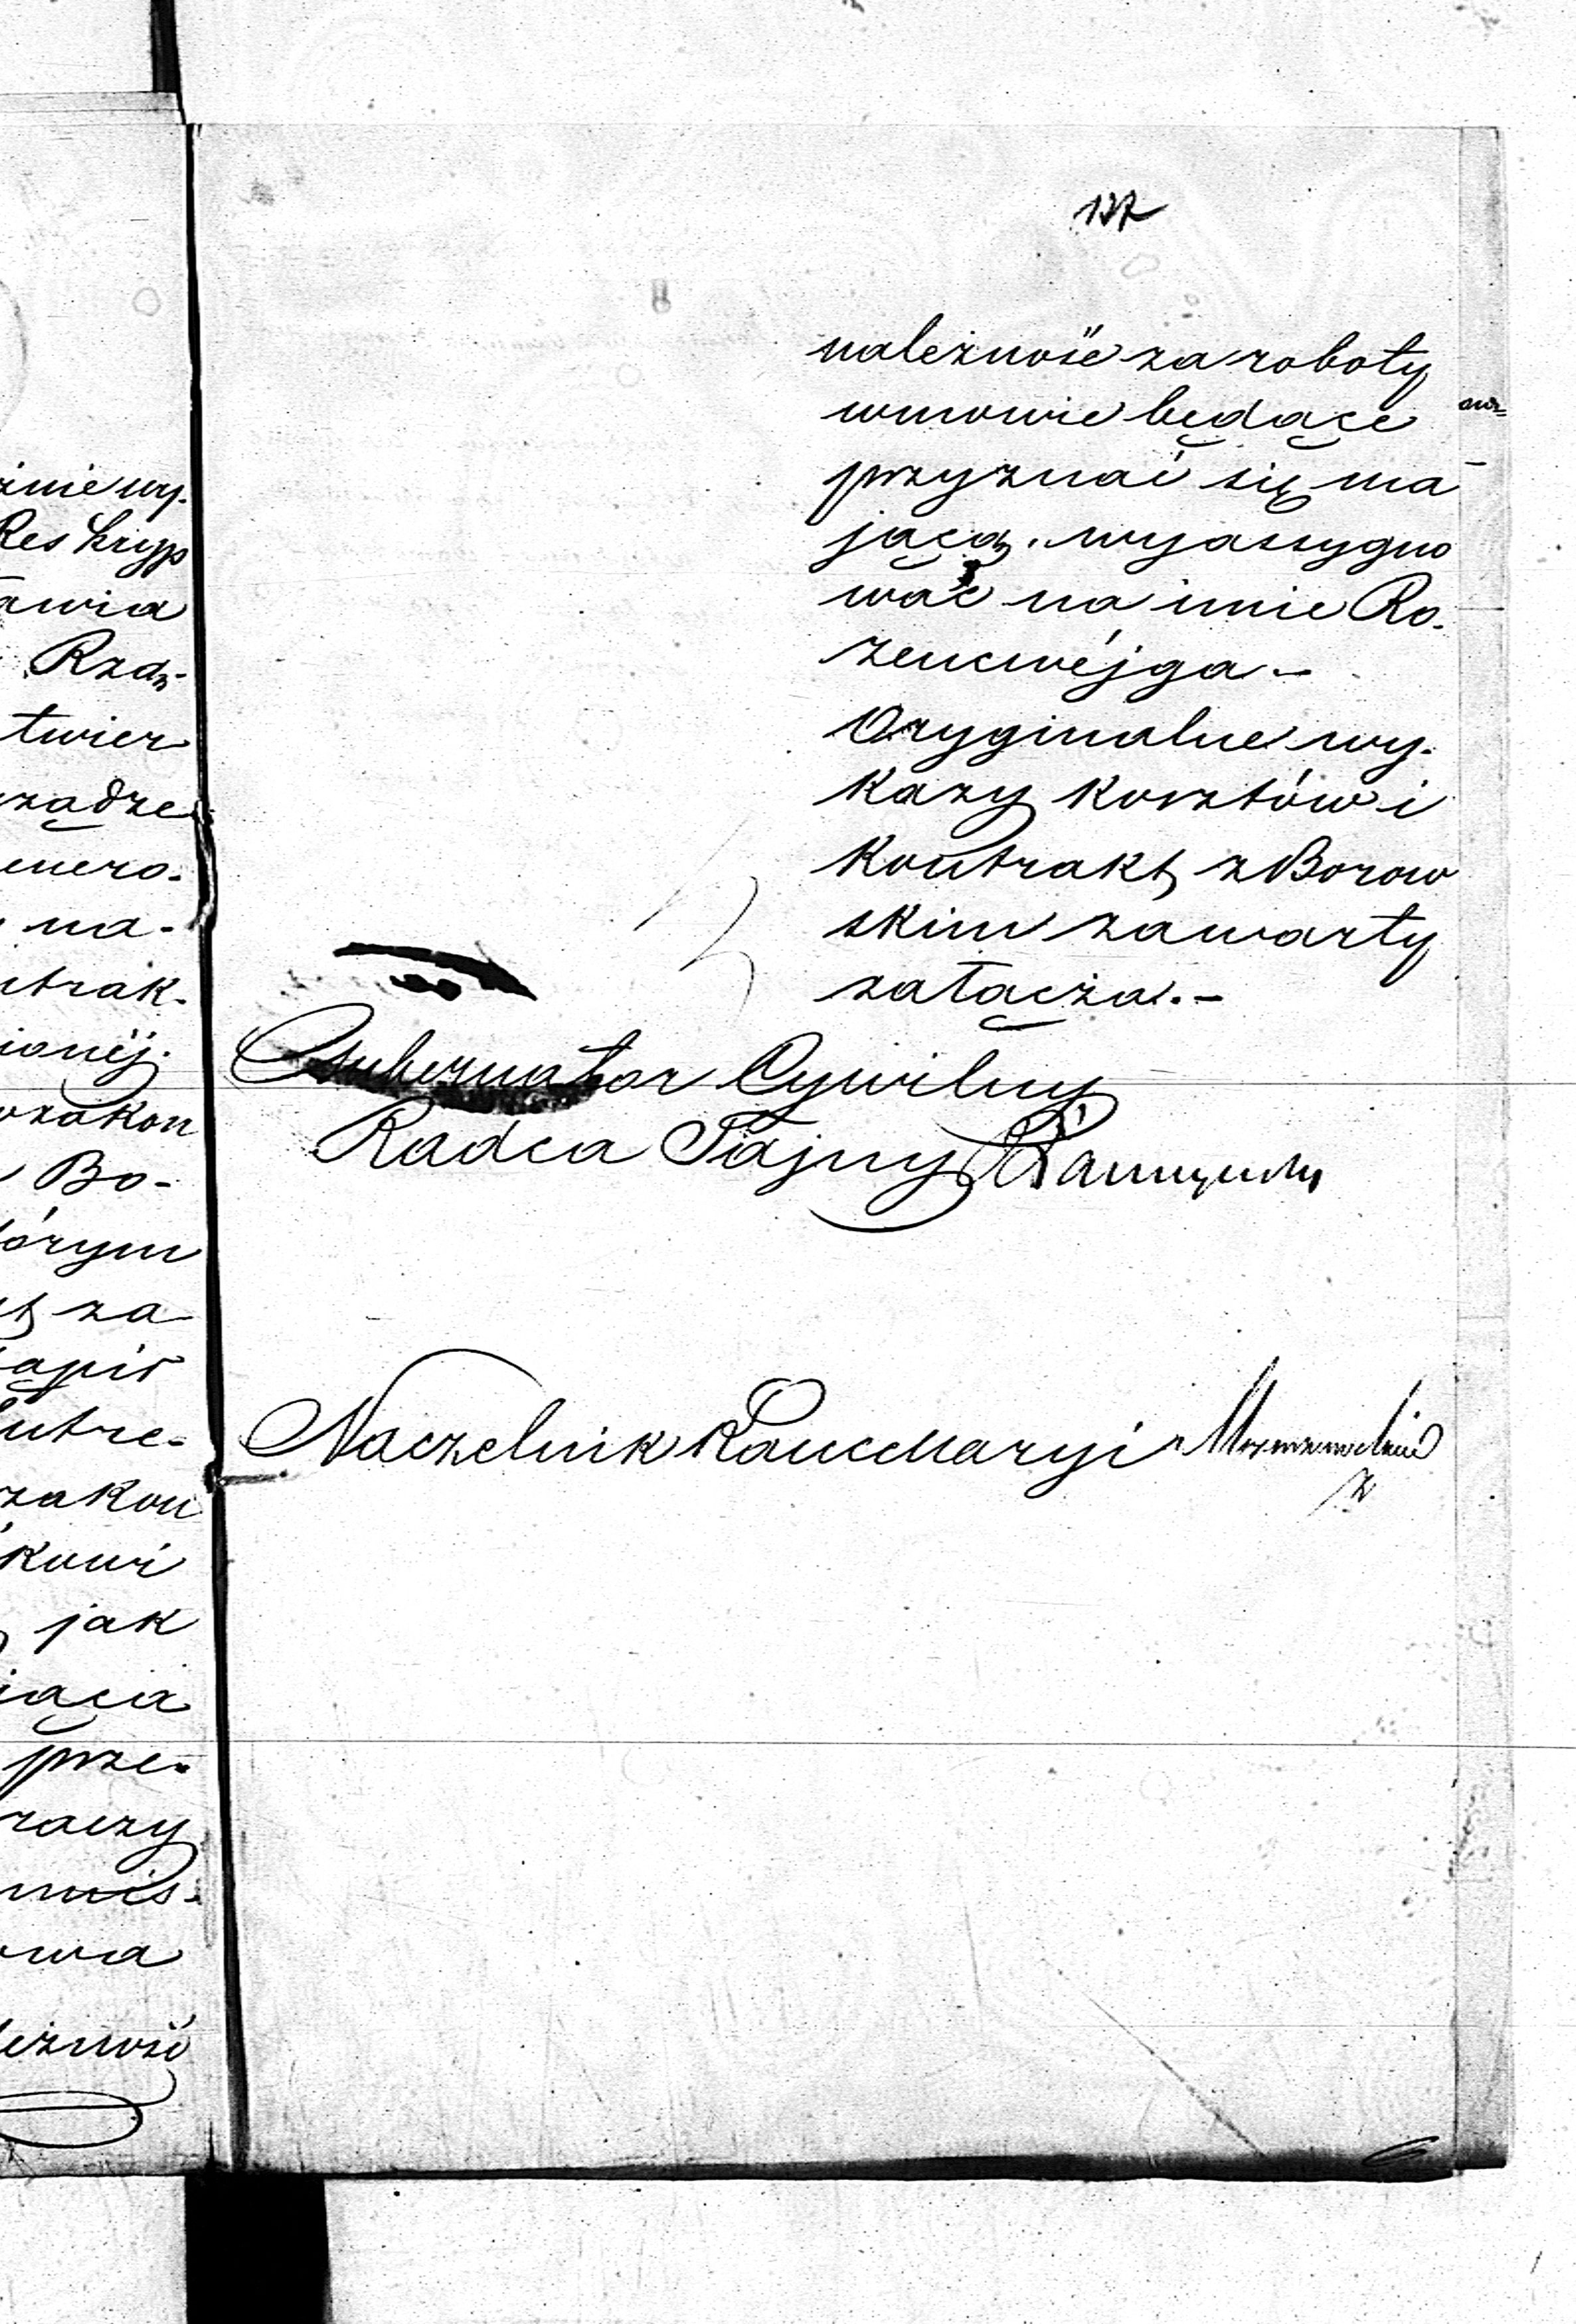 137
należność za roboty
wmowie będące
przyznać się ma
jącą, wyassygno
wać na imie Ro-
zencwéjga.-
Oryginalne wy-
kazy kosztów i
kontrakt z Borow
skim zawarty
załącza.-
Gubernator Cywilny
Radca Tajny
Naczelnik Kancellaryi
żnie wy-
Reskryp
awia
Rzą-
twier
ządze
enera-
na-
ntrak-
ionéj.
zakon
Bo-
tórym
za
apis
ntre-
zakon
kowi
jak
jącą
prze-
raczy
mis-
wa
leżność